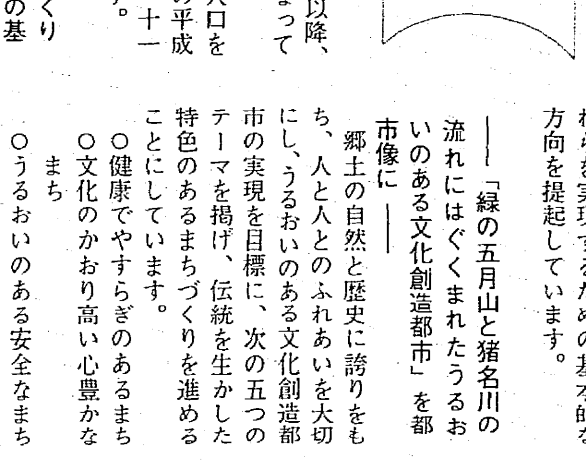 れらを実現するための基本的な
方向を提起しています。
――「緑の五月山と猪名川の
流れにはぐくまれたうるお
いのある文化創造都市」を都
市像に――
郷土の自然と歴史に誇りをも
ち、人と人とのふれあいを大切
にし、うるおいのある文化創造都
市の実現を目標に、次の五つの
テーマを掲げ、伝統を生かした
特色のあるまちづくりを進める
ことにしています。
○健康でやすらぎのあるまち
○文化のかおり高い心豊かな
まち
○うるおいのある安全なまち
以降、
なって
人口を
の平成
十一
す。
くり
の基